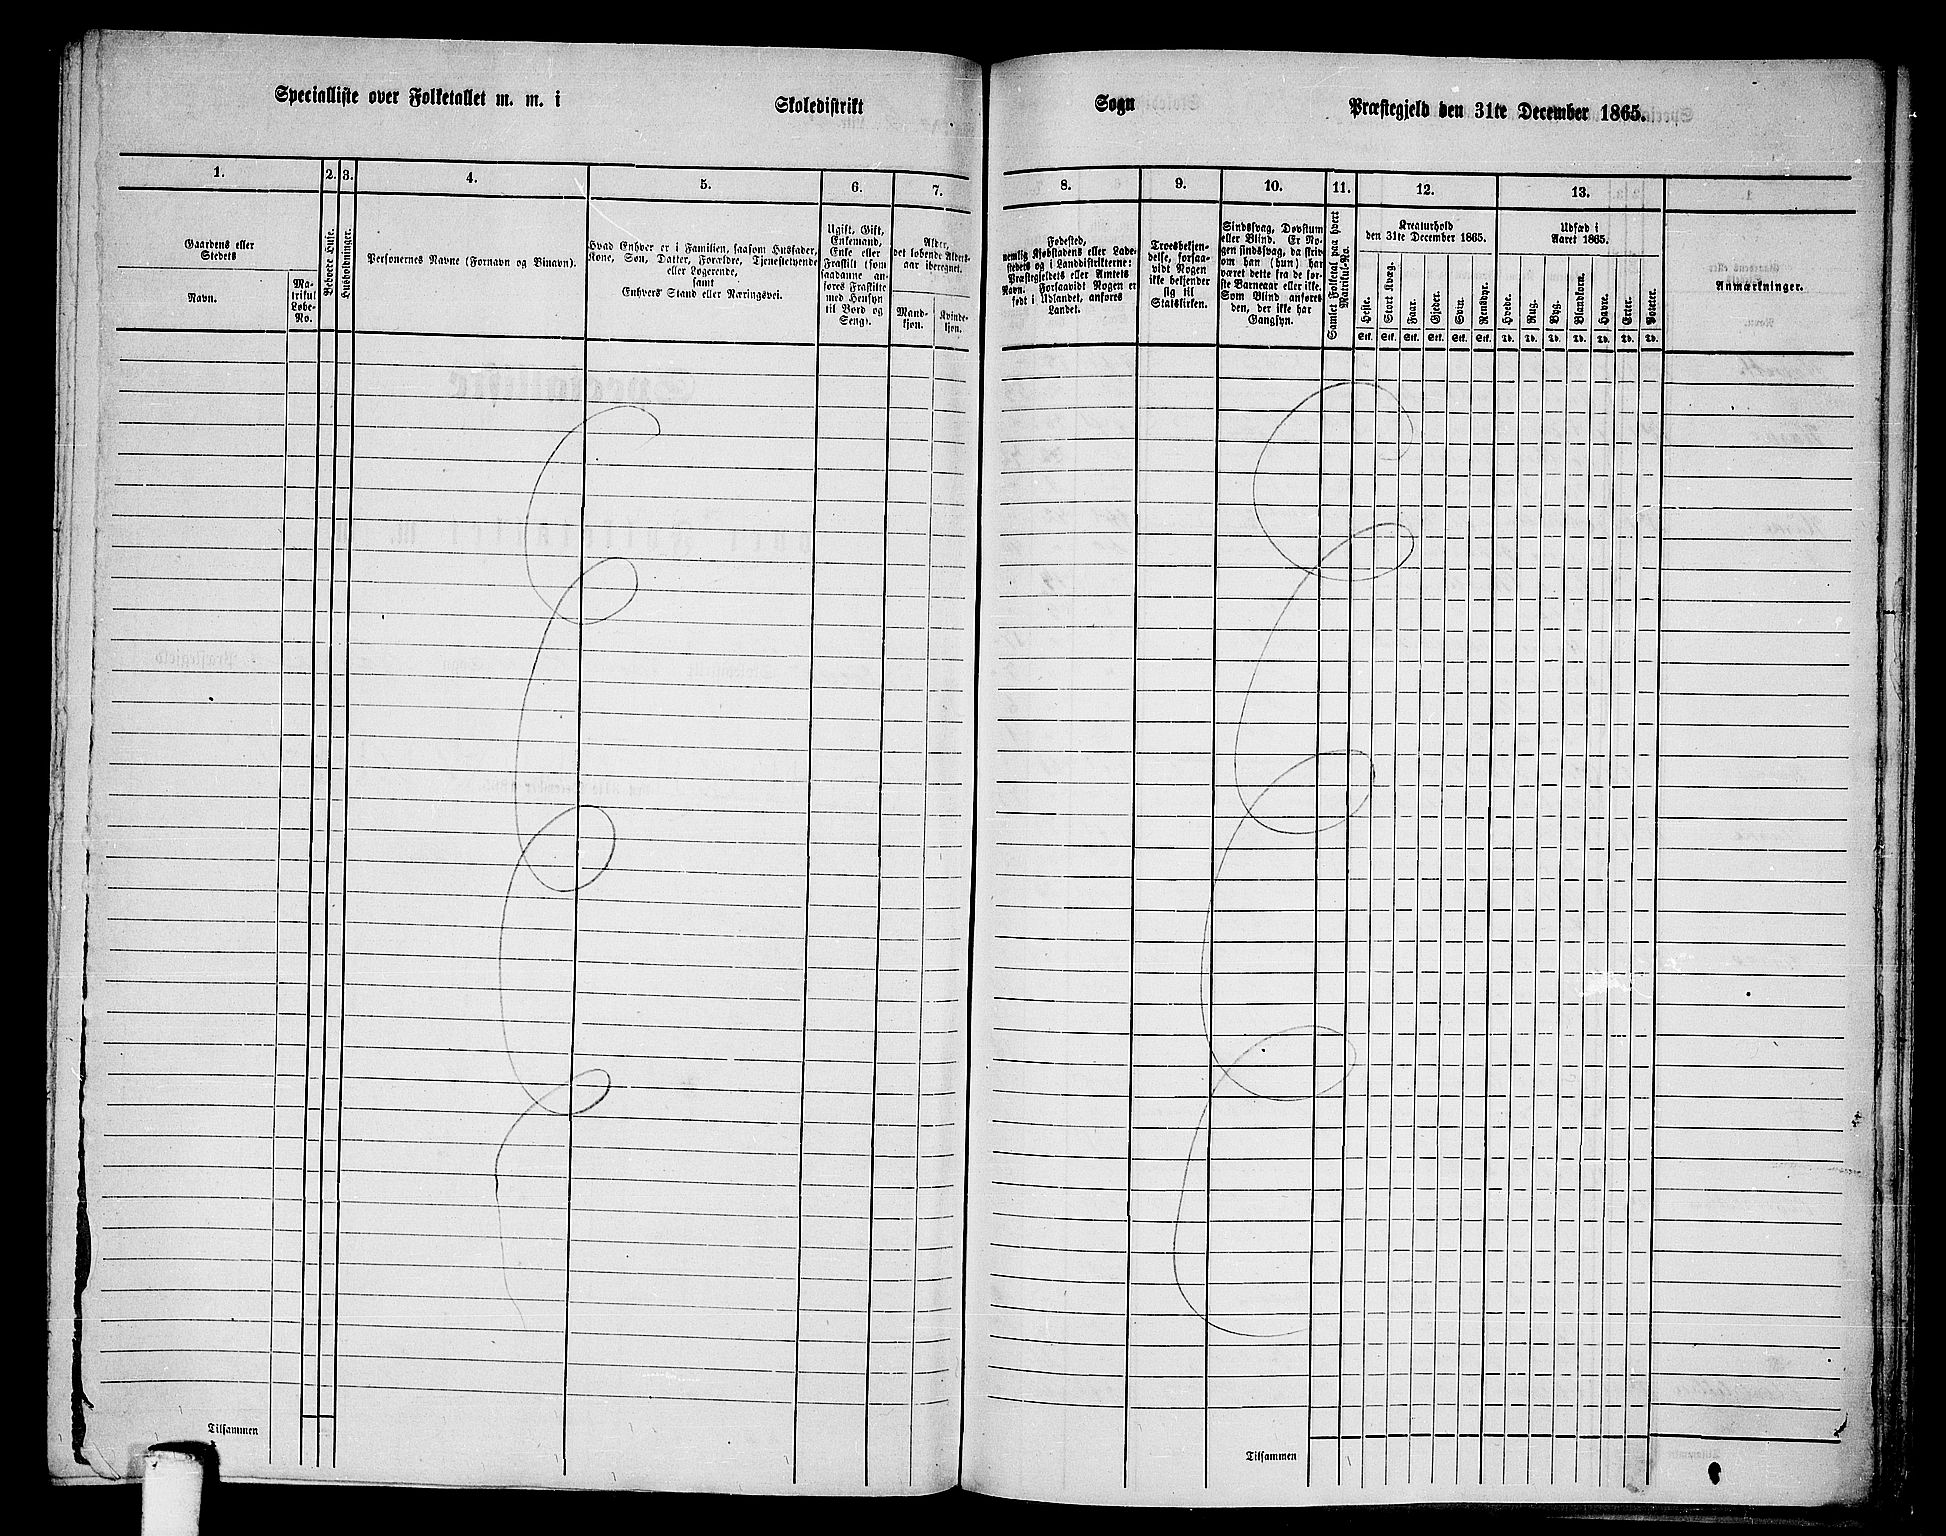 Specialliste over Folketallet m. m. i Skoledistrikt Sogn Præstegjeld den 31te December 1865.
1. 2. 3. 4. 5. 6. 7. 8. 9. 10. 11. 12. 13.
Gaardens eller
Stedets
Navn.
Ma-
trikul
Løbe-
No.
Beboede Huse.
Husholdninger.
Personernes Navne (Fornavn og Binavn).
Hvad Enhver er i Familien, saasom Husfader,
Kone, Søn, Datter, Forældre, Tjenestetyende
eller Logerende,
samt
Enhvers Stand eller Næringsvei.
Ugift, Gift,
Enkemand,
Enke eller
Fraskilt (som
saadanne an-
føres Fraskilte
med Hensyn
til Bord og
Seng).
Alder,
det løbende Alders-
aar iberegnet.
Mand-
kjøn.
Kvinde-
kjøn.
Fødested,
nemlig Kjøbstadens eller Lade-
stedets og i Landdistrikterne:
Præstegjeldets eller Amtets
Navn. Forsaavidt Nogen er
født i Udlandet, anføres
Landet.
Troesbekjen-
delse, forsaa-
vidt Nogen
ikke bekjender
sig til
Statskirken.
Sindssvag, Døvstum
eller Blind. Er No-
gen sindssvag, da skriv
om han (hun) har
været dette fra de før-
ste Barneaar eller ikke.
Som Blind anføres
den, der ikke har
Gangsyn.
Samlet Folketal paa hvert
Matrikul-No.
Kreaturhold
den 31te December 1865.
Heste.
Stort Kvæg.
Faar.
Gjeder.
Svin.
Rensdyr.
Stk. Stk. Stk. Stk. Stk. Stk.
Udsæd i
Aaret 1865.
Hvede.
Rug.
Byg.
Blandkorn.
Havre.
Erter.
Poteter.
Td. Td. Td. Td. Td. Td. Td.
Anmærkninger.
Tilsammen
Tilsammen